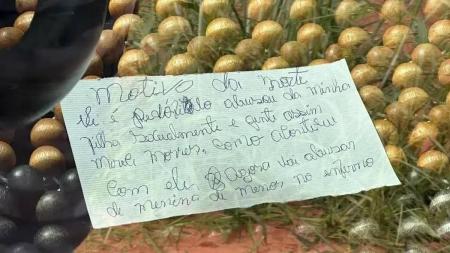 Motivo da morte
ele é pedófilo abusou da minha
filha sexualmente e gente assim
morre como aconteceu
com ele Agora vai abusar
de menina de menor no inferno